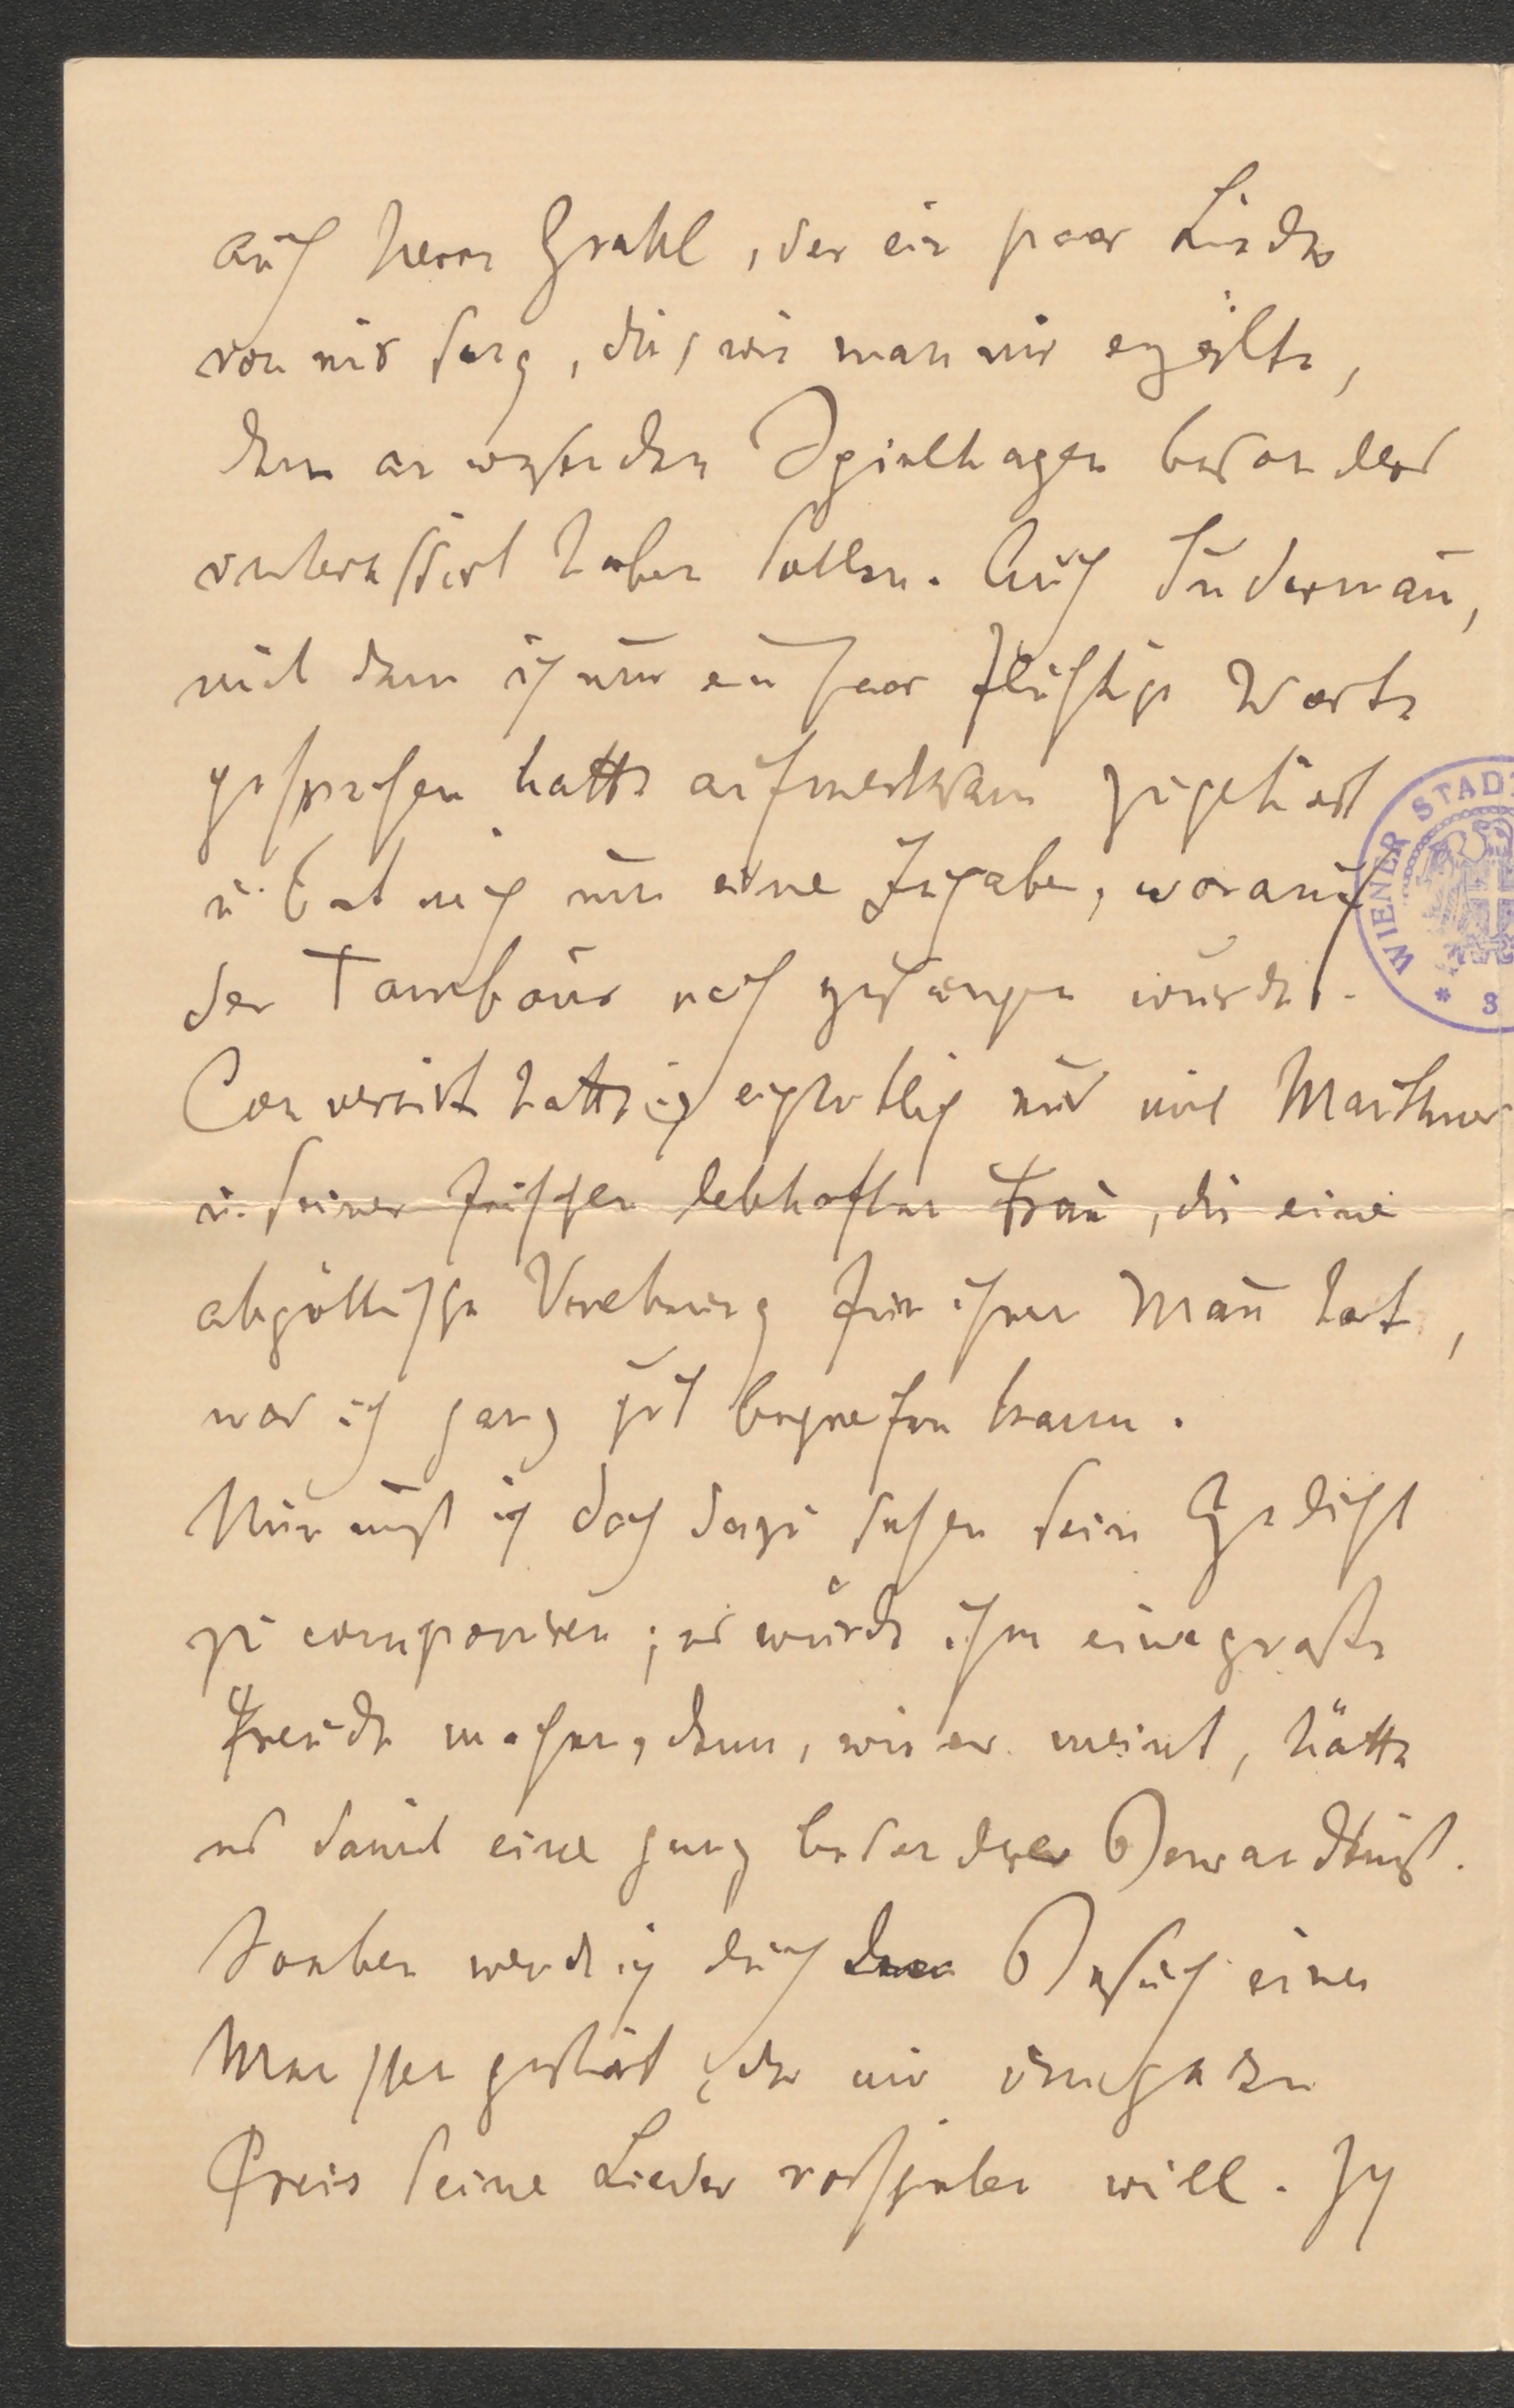 auch Herrn Grahl, der ein paar Lieder
von mir sang, die, wie man mir erzählte,
dem anwesenden Spielhagen besonders
interessirt haben sollen. Auch Sudermañ,
mit dem ich nur ein paar flüchtige Worte
gesprochen hatte aufmerksam zugehört
u. bat mich um eine Zugabe, worauf
der Tambour noch gesungen wurde.
Conversirt hatte ich eigentlich nur mit Mauthner
u. seiner frischen lebhaften Frau, die eine
abgöttische Verehrung für ihren Mañ hat,
was ich ganz gut begreifen kann.
Nun muß ich doch dazu sehen sein Gedicht
zu componiren; es würde ihm eine große
Freude machen, denn, wie er meint, hätte
es damit eine ganz besondere Bewandtniß.
Soeben werde ich durch den Besuch eines
Menschen gestört, der mir um jeden
Preis seine Lieder vorspielen will. Ich
WIENER STADT